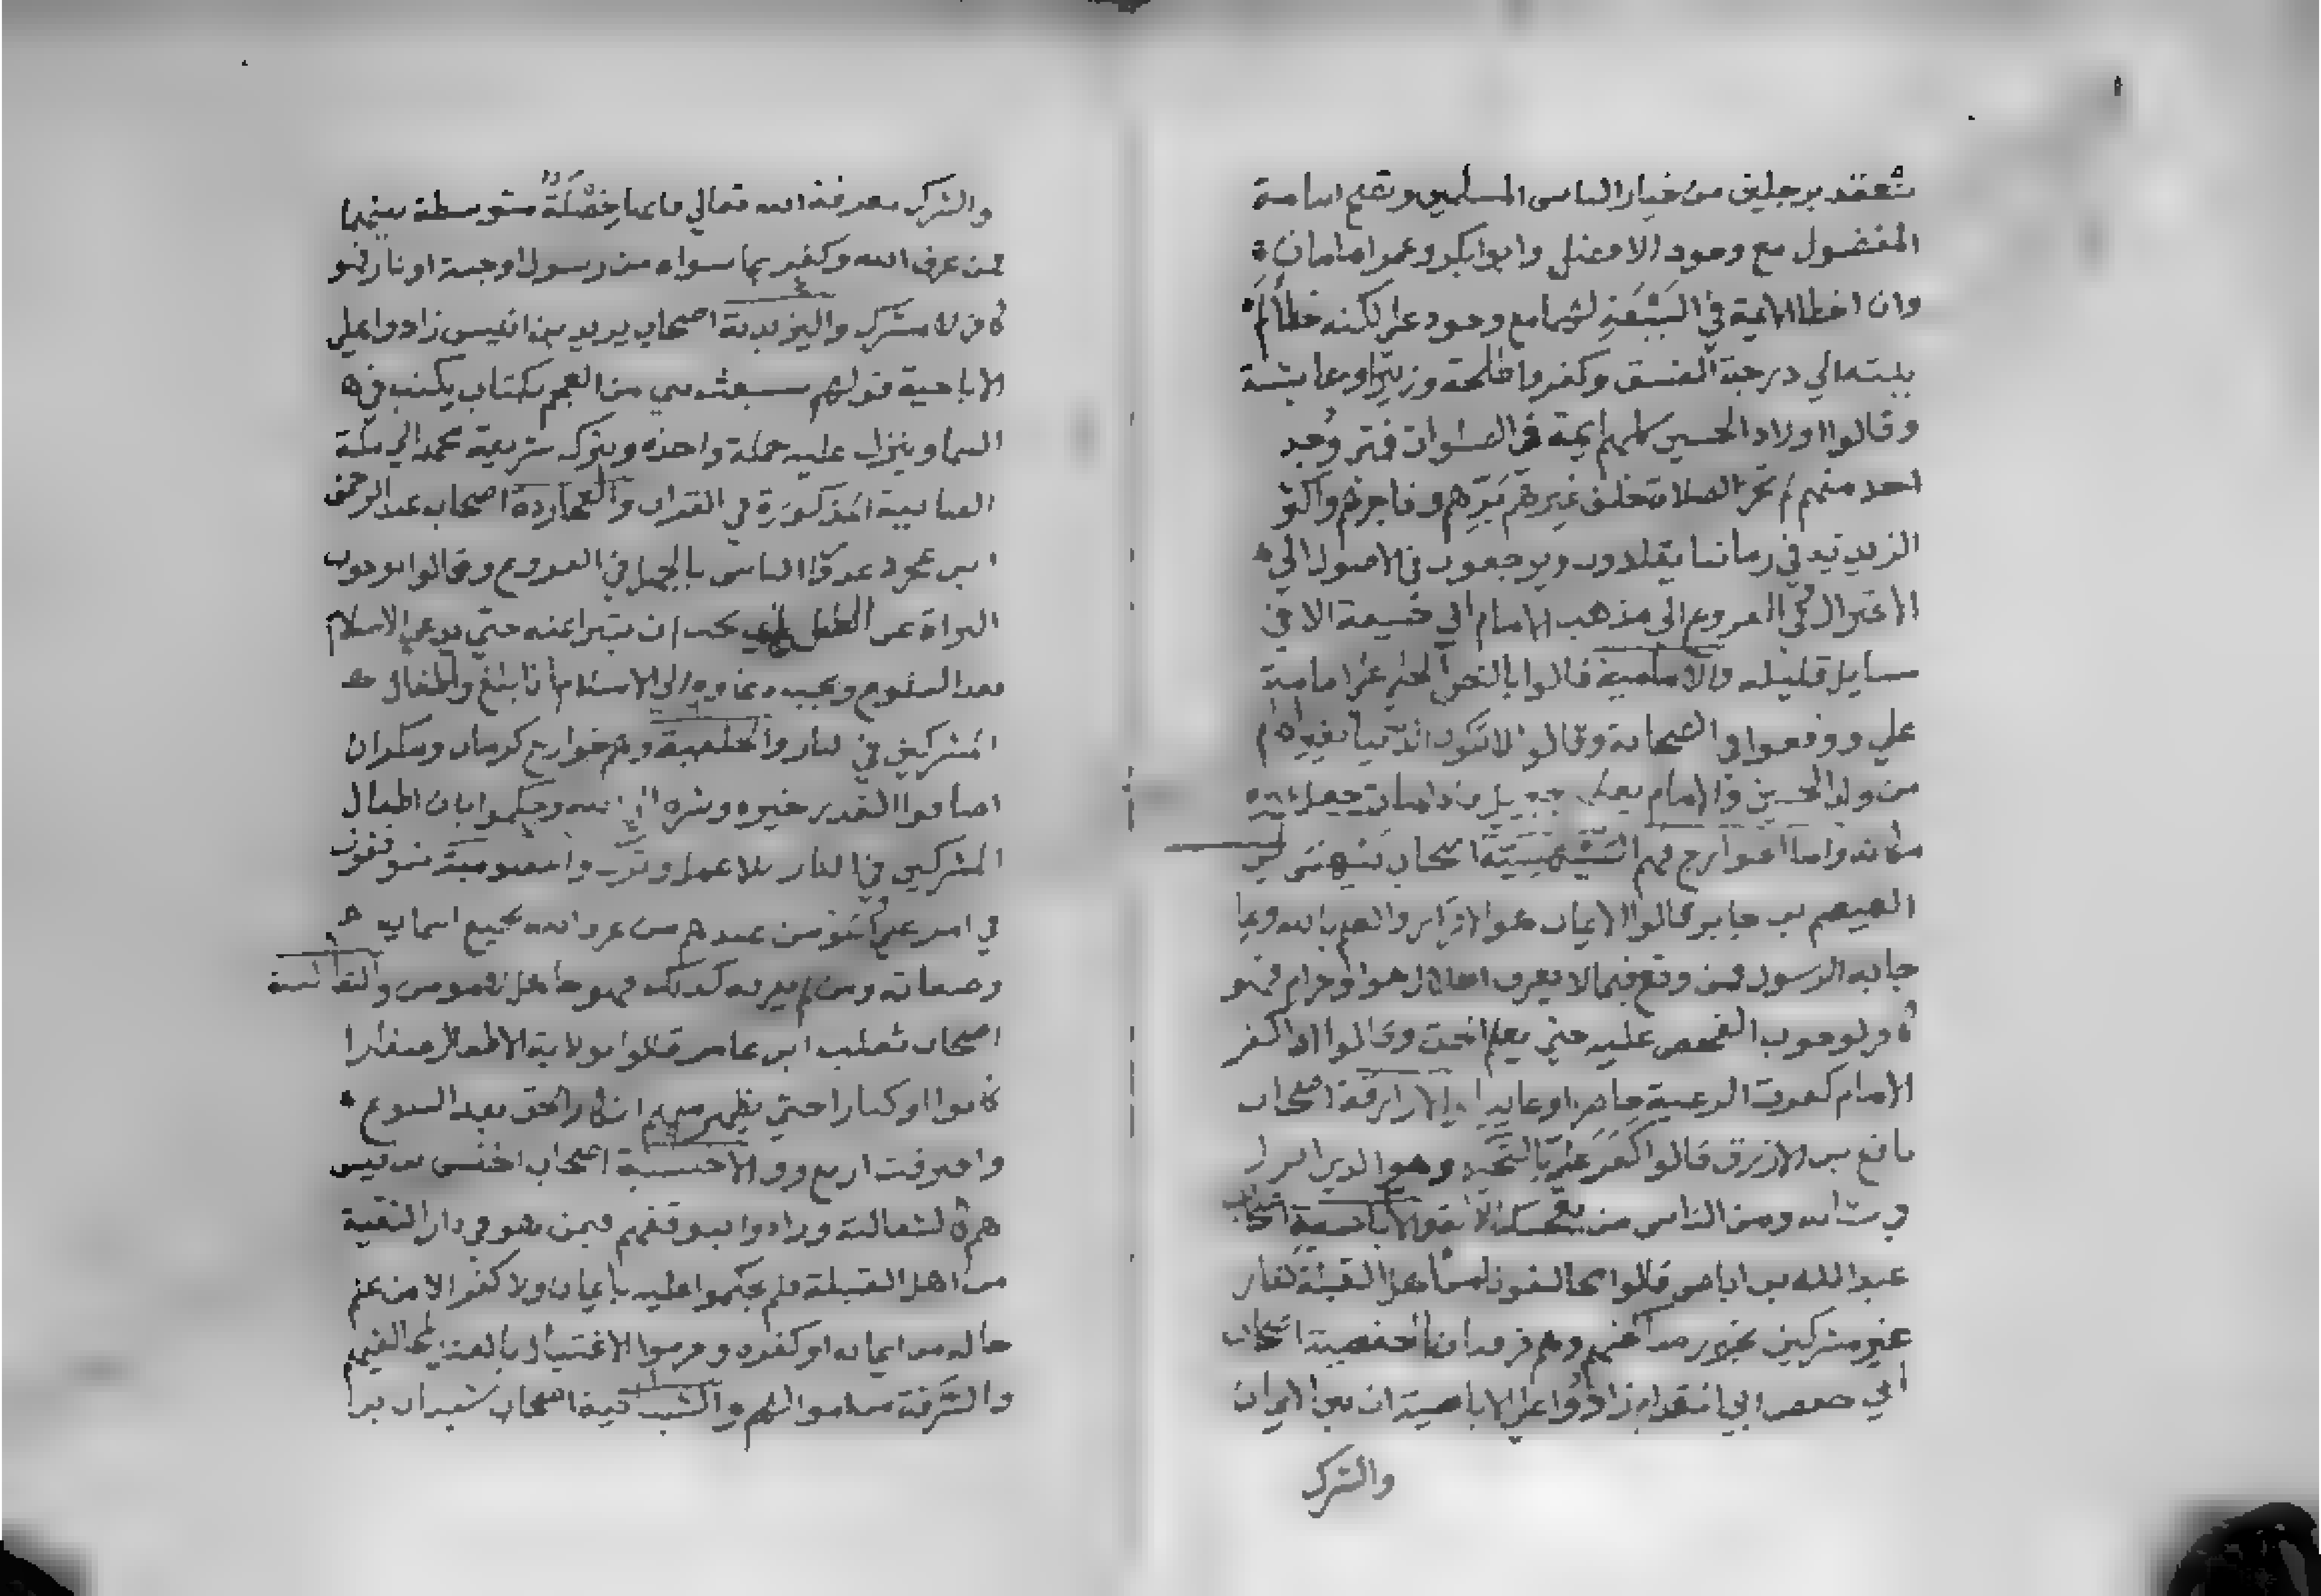 تنعقد برجلين من خيار الناس المسلمين وتصح امامة
المفضول مع وجود الافضل وابوابكر وعمر امامان
وان اخطا الامة في البيعة لهما مع وجود علي لكنه خطأ لم
ينته الي درجة الفسق وكفروا طلحة وزبير وعايشة
وقالوا اولاد الحسين كلهم ايمة في الصلوات فمتي وجد
احد منهم لم تجز الصلاة خلف غيرهم برهم وفاجرهم واكثر
الزيدية في زماننا يقلدون ويرجعون في الاصول الي
الاعتزال وفي الفروع الى مذهب الامام ابي حنيفة الا في
مسايل قليله والامامية قالوا بالنص الجلي على امامة
علي ووقعوا في الصحابة وقالوا لا تكون الدنيا بغير امام
من ولد الحسين والامام يعلمه جبريل فاذا مات جعل غيره
مكانه واما الخوارج فهم البيهسية اصحاب بيهس بن
الهيصم بن جابر قالوا الايمان هو الاقرار والعلم بالله وبما
جا به الرسول فمن وقع فيما لا يعرف احلال هو او حرام فهو
كافر لوجوب الفحص عليه حتى يعلم الحق وقالوا اذا كفر
الامام كفرت الرعية حاضرا او غايبا والازارقة اصحاب
نافع بن الازرق قالوا كفر علي بالتحكيم وهو الذي انزل
في شانه ومن الناس من يعجبك الاية والاباضية اصحاب
عبد الله بن اباض قالوا مخالفونا من اهل القبلة كفار
غير مشركين يجوز مناكحتهم وهم فرق اربع الحفصية اصحاب
ابي حفص ابن ابي المقدام زادوا على الاباضية ان بين الايمان
والشرك
والشرك معرفة الله تعالي فانها خصلة متوسطة بينهما
فمن عرف الله وكفر بما سواه من رسول او جنة او نار فهو
كافر لا مشرك واليزيدية اصحاب يزيد بن انيس زادوا علي
الاباضية قولهم سيبعث نبي من العجم بكتاب يكتب في
السما وينزل عليه جملة واحدة ويترك شريعة محمد الي ملة
الصابية المذكورة في القران والعجاردة اصحاب عبد الرحمن
ابن عجرد عذروا الناس بالجهل في الفروع وقالوا بوجوب
البراة عن الطفل اي يجب ان يتبرا عنه حتي يدعي الاسلام
بعد البلوغ ويجب دعاوه الي الاسلام اذا بلغ واطفال
المشركين في النار والخلفية وهم خوارج كرمان ومكران
اضافوا القدر خيره وشره الي الله وحكموا بان اطفال
المشركين في النار بلا عمل وشرك والمعلومية
المؤمن عندهم من عرف الله بجميع اسمايه
وصفاته ومن لم يعرفه كذلك فهو جاهل لا مومن والثعالبة
اصحاب ثعلب ابن عامر قالوا بولاية الاطفال صغارا
كانوا او كبارا حتي يظهر منهم انكار الحق بعد البلوغ
وافترقت اربع فرق الاخنسية اصحاب اخنس بن قيس
هم كالثعالبة وزادوا بتوقفهم فيمن هو في دار التقية
من اهل القبلة فلم يحكموا عليه بايمان ولا كفر الا من علم
حاله من ايمانه او كفره وحرموا الاغتيال بالقتل لمخالفيهم
والسرقة من اموالهم والشيبانية اصحاب شيبان